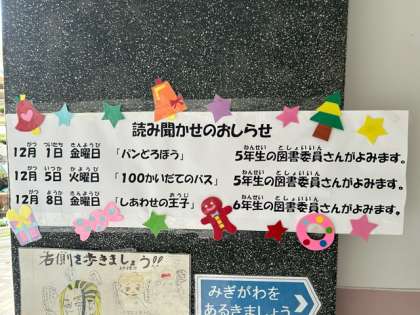 読み聞かせのおしらせ
12月 1日 金曜日 「パンどろぼう」 5年生の図書委員さんがよみます。
12月 5日 火曜日 「100かいだてのバス」 5年生の図書委員さんがよみます。
12月 8日 金曜日 「しあわせの王子」 6年生の図書委員さんがよみます。
右側を歩きましょう!!
みぎがわを
あるきましょう